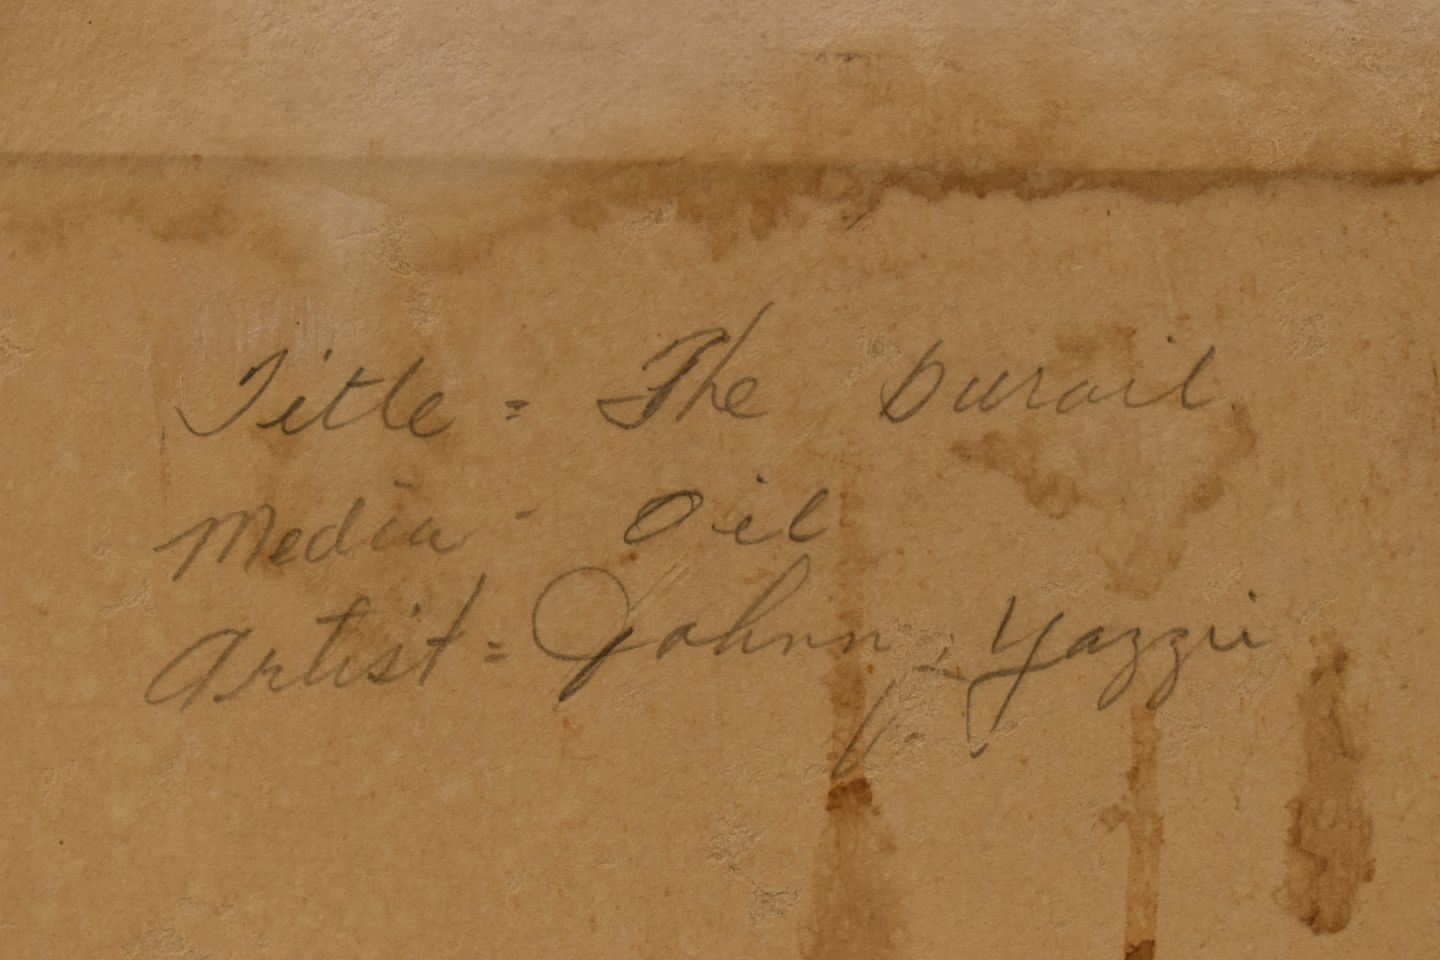 Title = The burail
Media - Oil
Artist = Johnny Yazzie